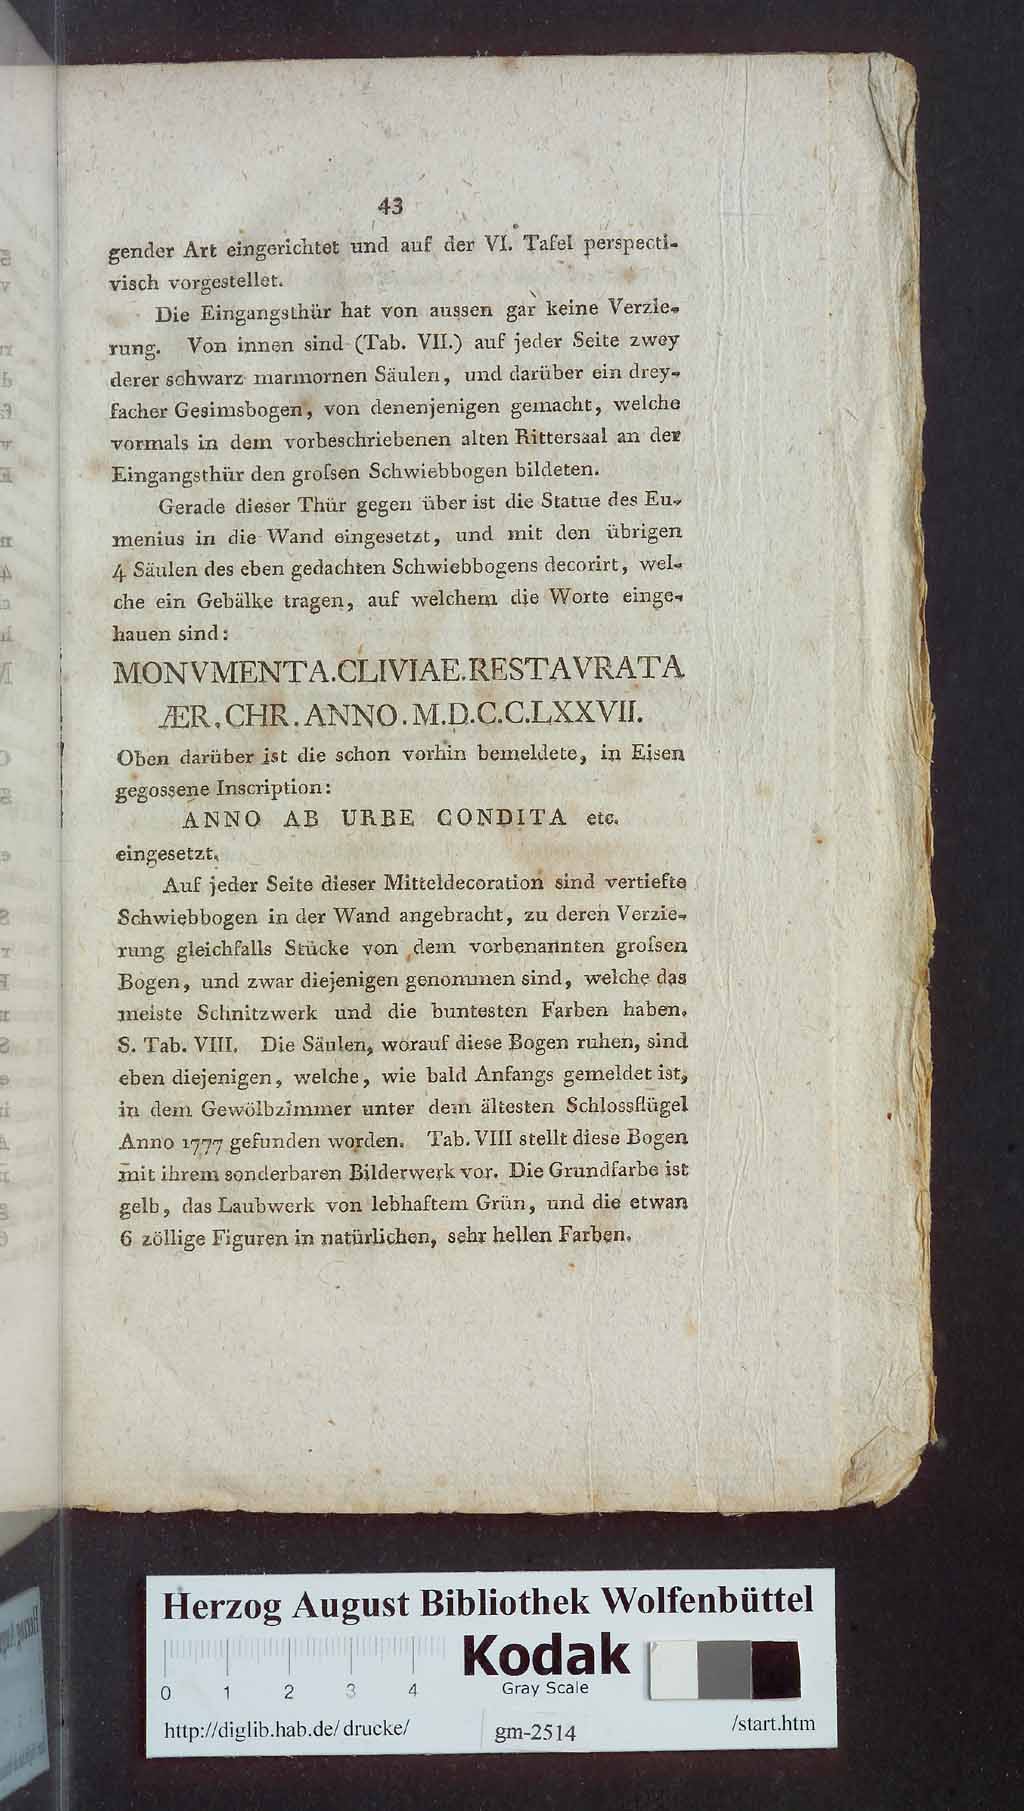 43
gender Art eingerichtet und auf der VI. Tafel perspecti-
visch vorgestellet.
Die Eingangsthür hat von aussen gar keine Verzie-
rung. Von innen sind (Tab. VII.) auf jeder Seite zwey
derer schwarz marmornen Säulen, und darüber ein drey-
facher Gesimsbogen, von denenjenigen gemacht, welche
vormals in dem vorbeschriebenen alten Rittersaal an der
Eingangsthür den groſsen Schwiebbogen bildeten.
Gerade dieser Thür gegen über ist die Statue des Eu-
menius in die Wand eingesetzt, und mit den übrigen
4 Säulen des eben gedachten Schwiebbogens decorirt, wel-
che ein Gebälke tragen, auf welchem die Worte einge-
hauen sind:
MONVMENTA.CLIVIAE.RESTAVRATA
ÆR.CHR.ANNO.M.D.C.C.LXXVII.
Oben darüber ist die schon vorhin bemeldete, in Eisen
gegossene Inscription:
ANNO AB URBE CONDITA etc.
eingesetzt.
Auf jeder Seite dieser Mitteldecoration sind vertiefte
Schwiebbogen in der Wand angebracht, zu deren Verzie-
rung gleichfalls Stücke von dem vorbenannten groſsen
Bogen, und zwar diejenigen genommen sind, welche das
meiste Schnitzwerk und die buntesten Farben haben.
S. Tab. VIII. Die Säulen, worauf diese Bogen ruhen, sind
eben diejenigen, welche, wie bald Anfangs gemeldet ist,
in dem Gewölbzimmer unter dem ältesten Schlossflügel
Anno 1777 gefunden worden. Tab. VIII stellt diese Bogen
mit ihrem sonderbaren Bilderwerk vor. Die Grundfarbe ist
gelb, das Laubwerk von lebhaftem Grün, und die etwan
6 zöllige Figuren in natürlichen, sehr hellen Farben.
Herzog August Bibliothek Wolfenbüttel
Kodak
Gray Scale
0 1 2 3 4
http://diglib.hab.de/drucke/ gm-2514 /start.htm